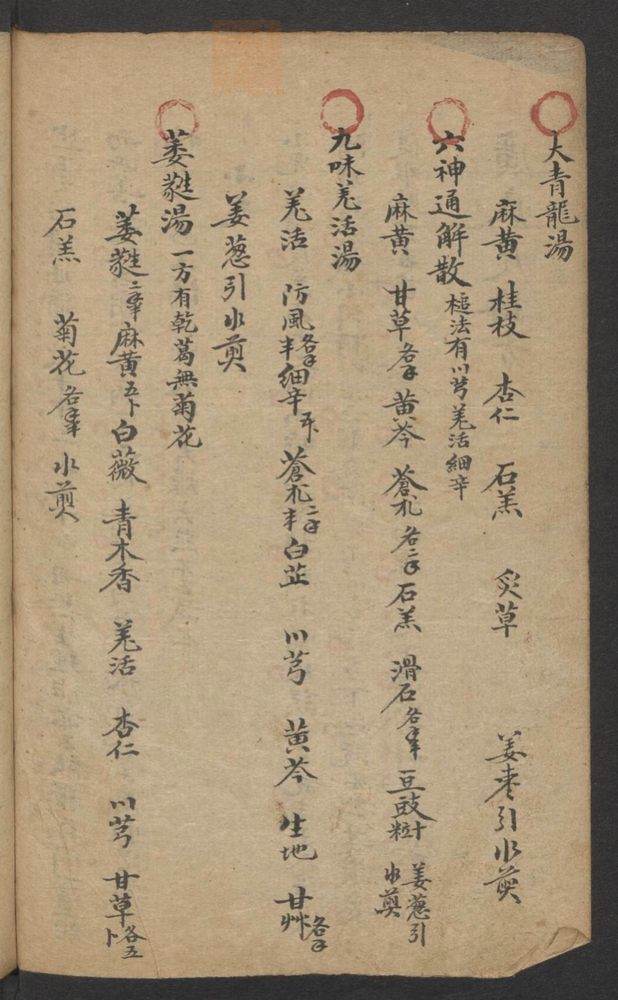 大青龍湯
麻黄 桂枝 杏仁 石羔 炙草 姜枣引水煎
六神通解散 槌法有川芎羌活細辛
麻黄 甘草 黄芩 蒼朮 石羔 滑石 豆豉十粒 姜葱引水煎
九味羌活湯
羌活 防風 細辛 蒼朮 白芷 川芎 黄芩 生地 甘艸
姜葱引水煎
萎蕤湯 一方有乾葛無菊花
萎蕤 麻黄 白薇 青木香 羌活 杏仁 川芎 甘草各五卜
石羔 菊花 水煎